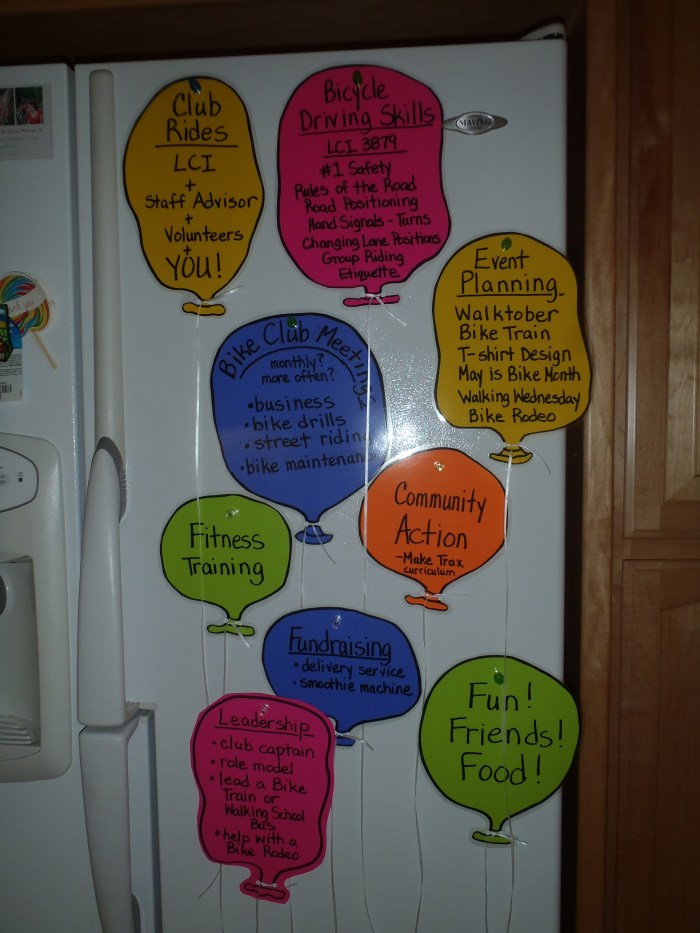 Club
Rides
LCI
+
Staff Advisor
+
Volunteers
+
YOU!
Bicycle
Driving Skills
LCI 3879
#1 Safety
Rules of the Road
Road Positioning
Hand Signals - Turns
Changing Lane Positions
Group Riding
Etiquette
MAYTAG
Event
Planning
Walktober
Bike Train
T-shirt Design
May is Bike Month
Walking Wednesday
Bike Rodeo
Bike Club Meetings
monthly?
more often?
• business
• bike drills
• street riding
• bike maintenance
Community
Action
-Make Trax
curriculum
Fitness
Training
Fundraising
• delivery service
• smoothie machine
Leadership
• club captain
• role model
• lead a Bike
Train or
Walking School
Bus
• help with a
Bike Rodeo
Fun!
Friends!
Food!